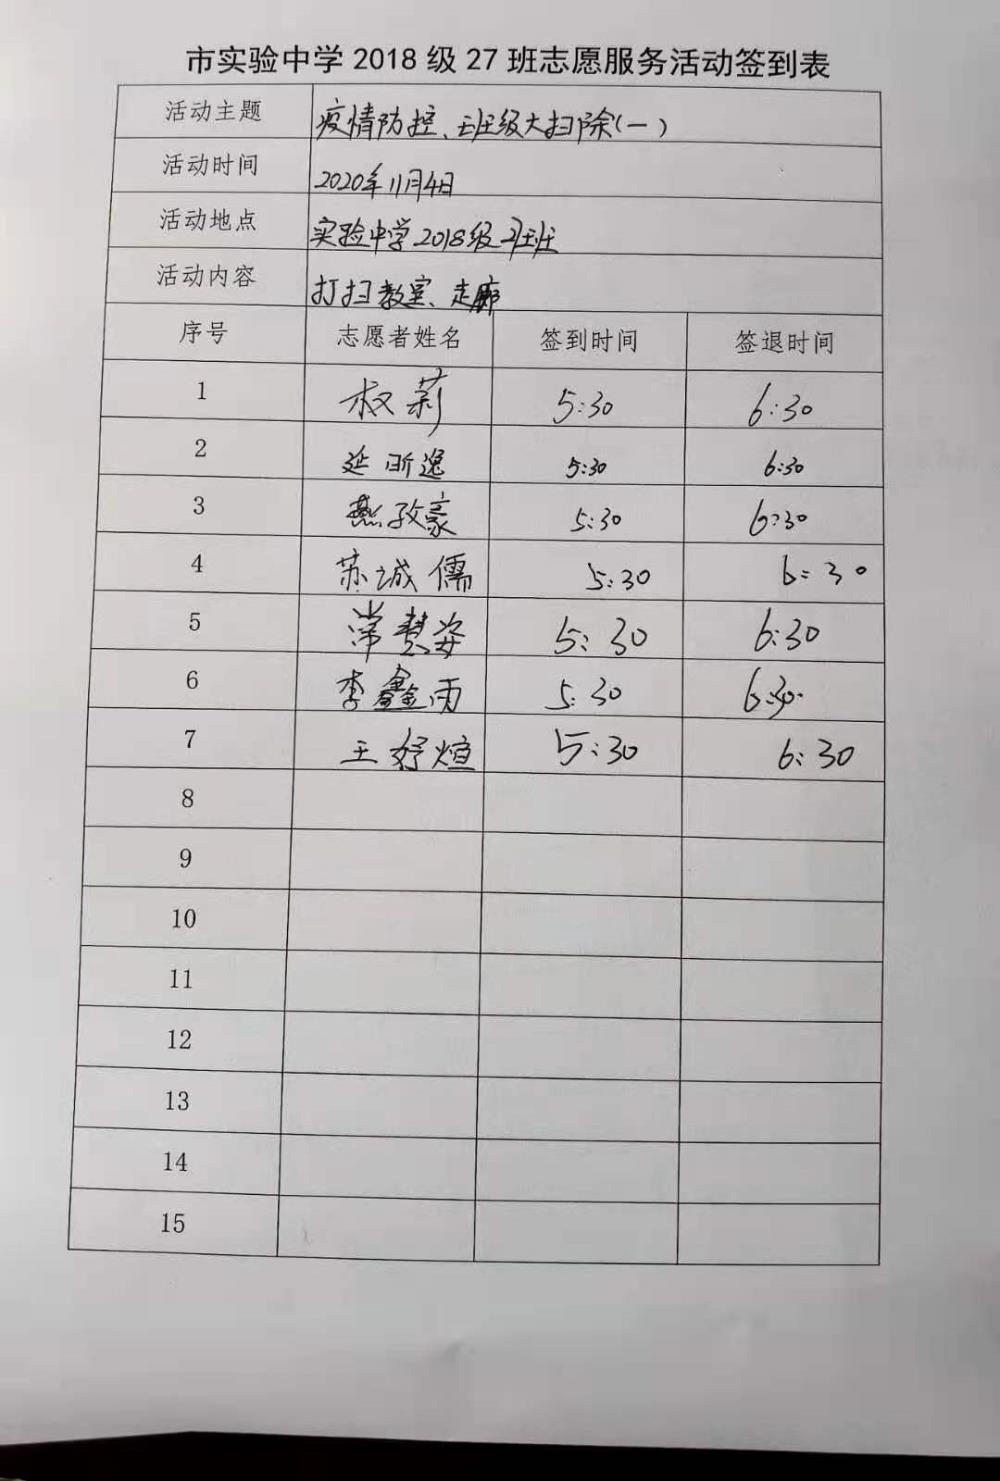 市实验中学2018级27班志愿服务活动签到表
活动主题 疫情防控、班级大扫除(一)
活动时间 2020年11月4日
活动地点 实验中学2018级27班
活动内容 打扫教室、走廊
序号 志愿者姓名 签到时间 签退时间
1 权莉 5:30 6:30
2 延昕逸 5:30 6:30
3 燕孜豪 5:30 6:30
4 苏诚儒 5:30 6:30
5 常慧姿 5:30 6:30
6 李鑫雨 5:30 6:30
7 王妤煊 5:30 6:30
8
9
10
11
12
13
14
15